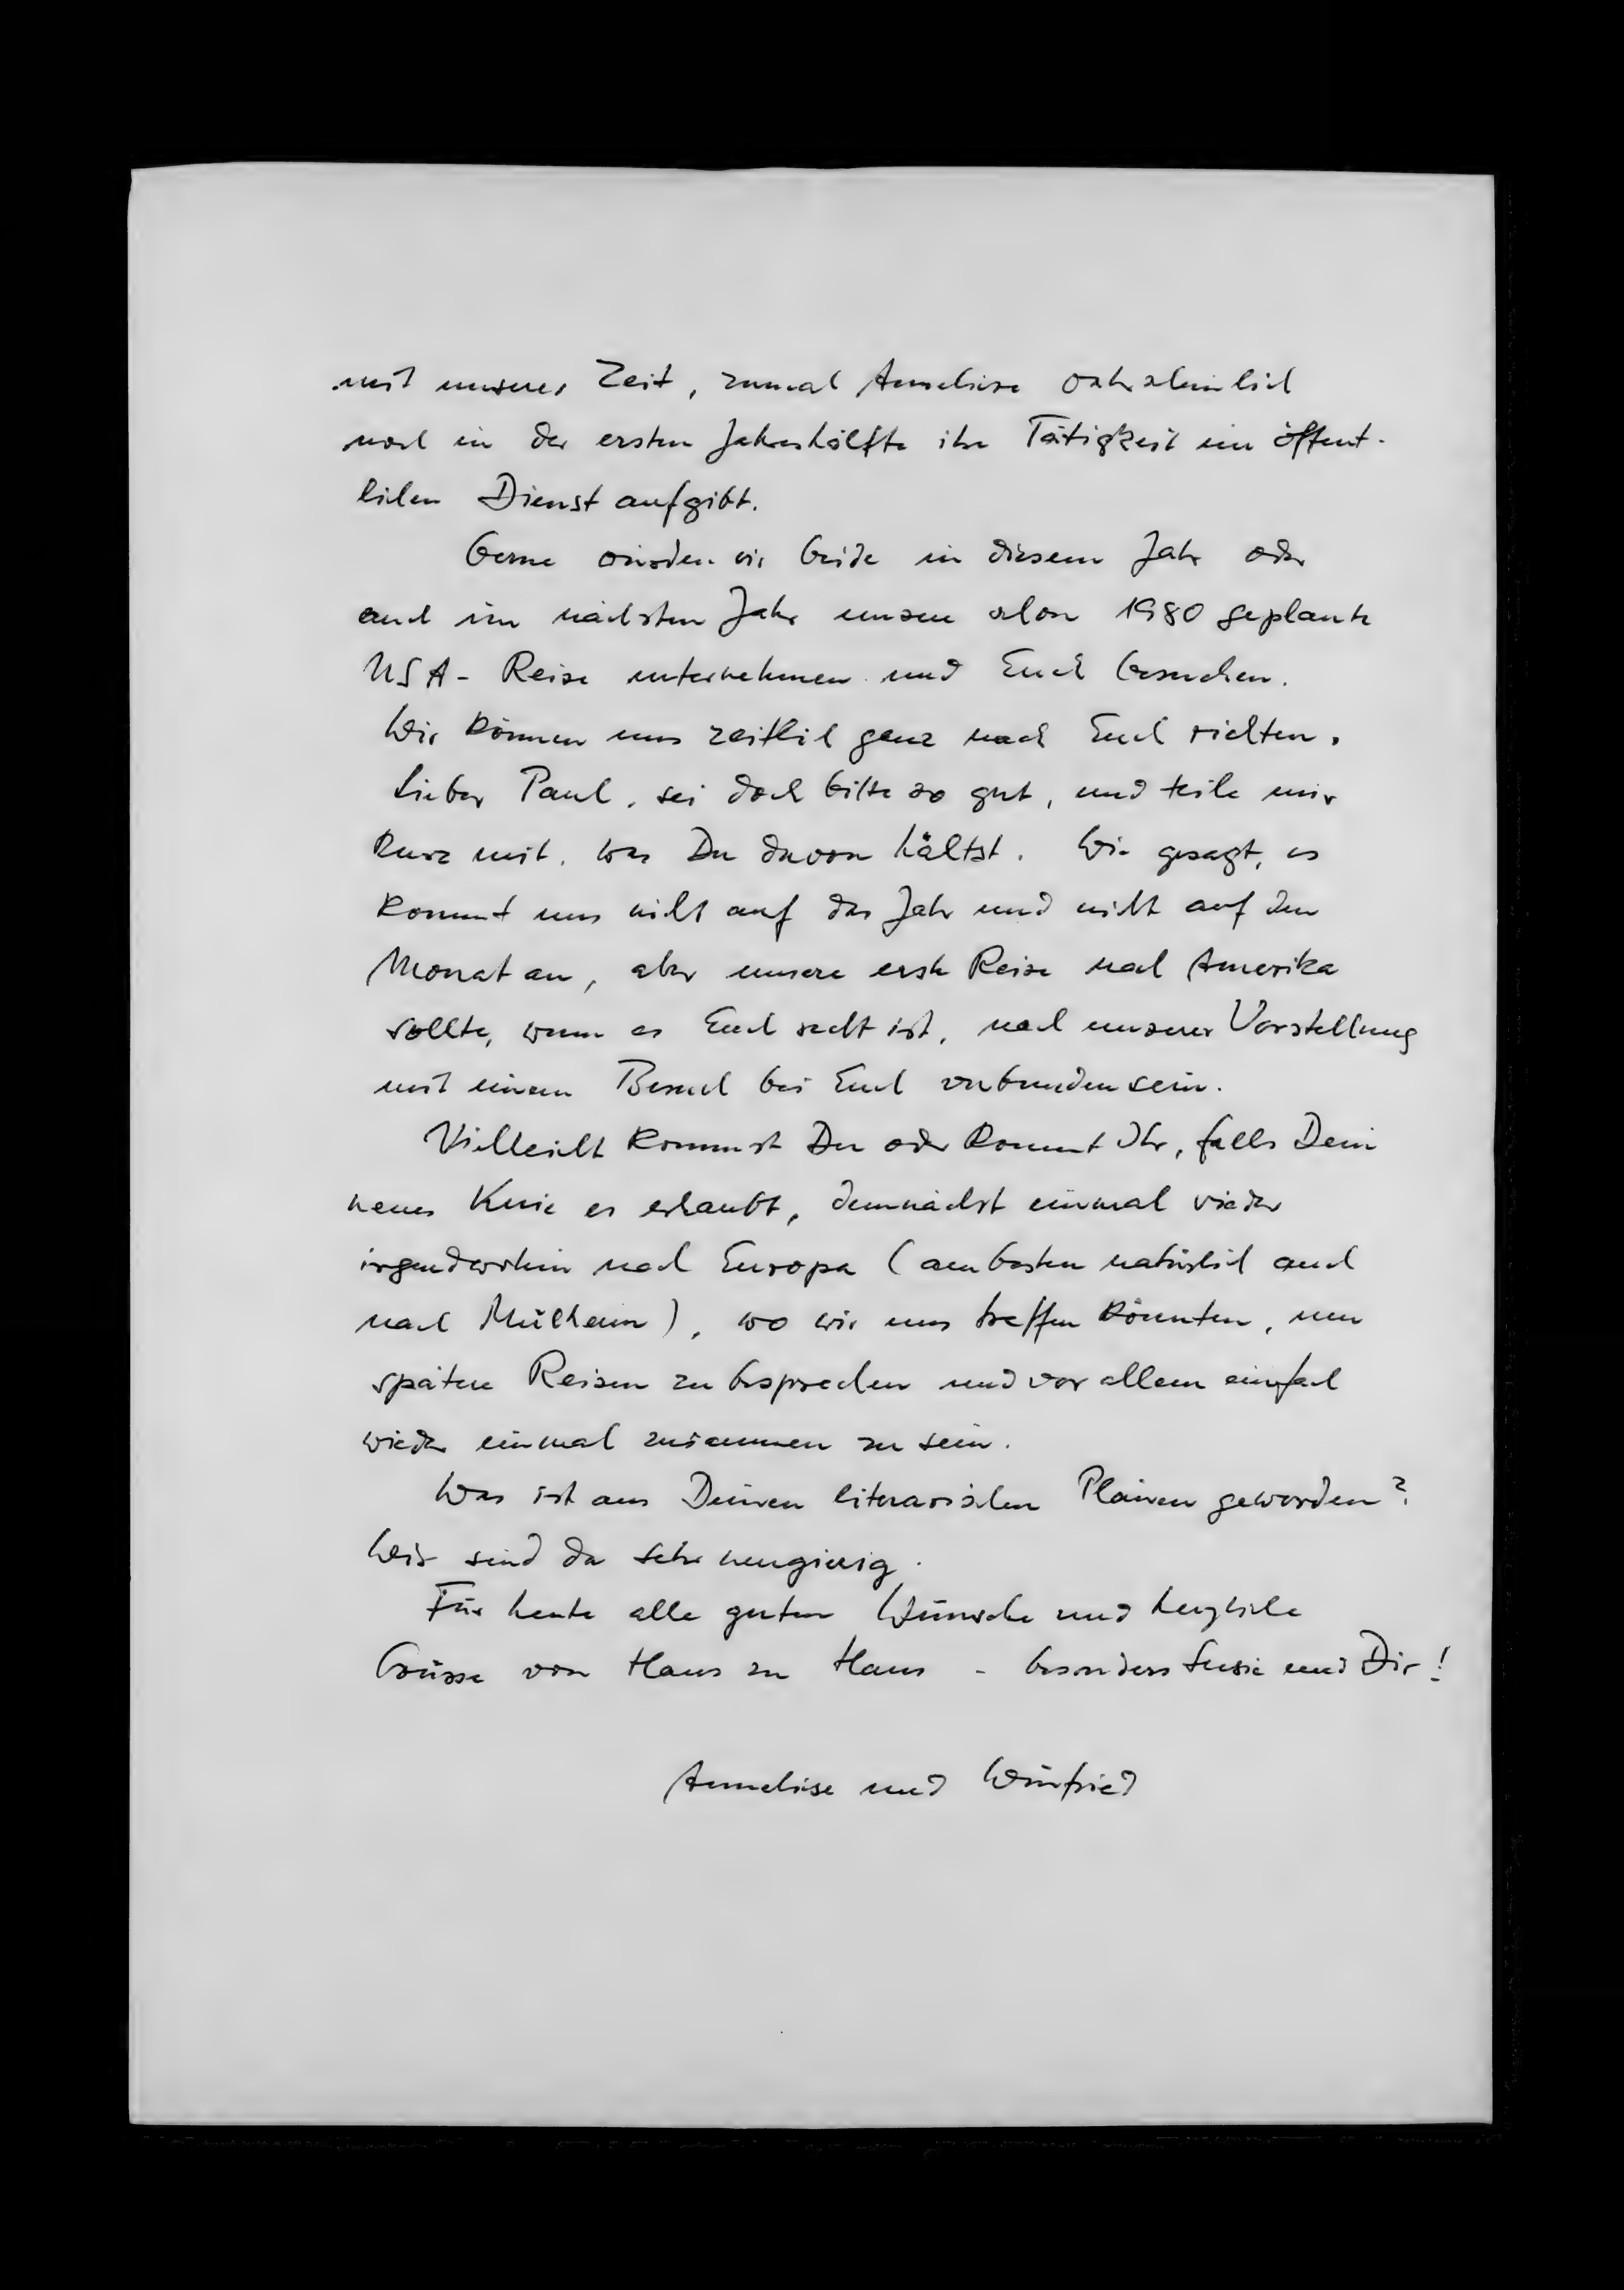 mit unserer Zeit, zumal Anneliese wahrscheinlich
noch in der ersten Jahreshälfte ihre Tätigkeit im öffent-
lichen Dienst aufgibt.
Gerne würden wir beide in diesem Jahr oder
auch im nächsten Jahr unsere schon 1980 geplante
USA-Reise unternehmen und Euch besuchen.
Wir können uns zeitlich ganz nach Euch richten.
Lieber Paul, sei doch bitte so gut, und teile mir
kurz mit, was Du davon hältst. Wie gesagt, es
kommt uns nicht auf das Jahr und nicht auf den
Monat an, aber unsere erste Reise nach Amerika
sollte, wenn es Euch recht ist, nach unserer Vorstellung
mit einem Besuch bei Euch verbunden sein.
Vielleicht kommst Du oder kommt Ihr, falls Dein
neues Knie es erlaubt, demnächst einmal wieder
irgendwohin nach Europa (am besten natürlich auch
nach Mülheim), wo wir uns treffen könnten, um
spätere Reisen zu besprechen und vor allem einfach
wieder einmal zusammen zu sein.
Was ist aus Deinen literarischen Plänen geworden?
Wir sind da sehr neugierig.
Für heute alle guten Wünsche und herzliche
Grüsse von Haus zu Haus - besonders Susie und Dir!
Anneliese und Winfried